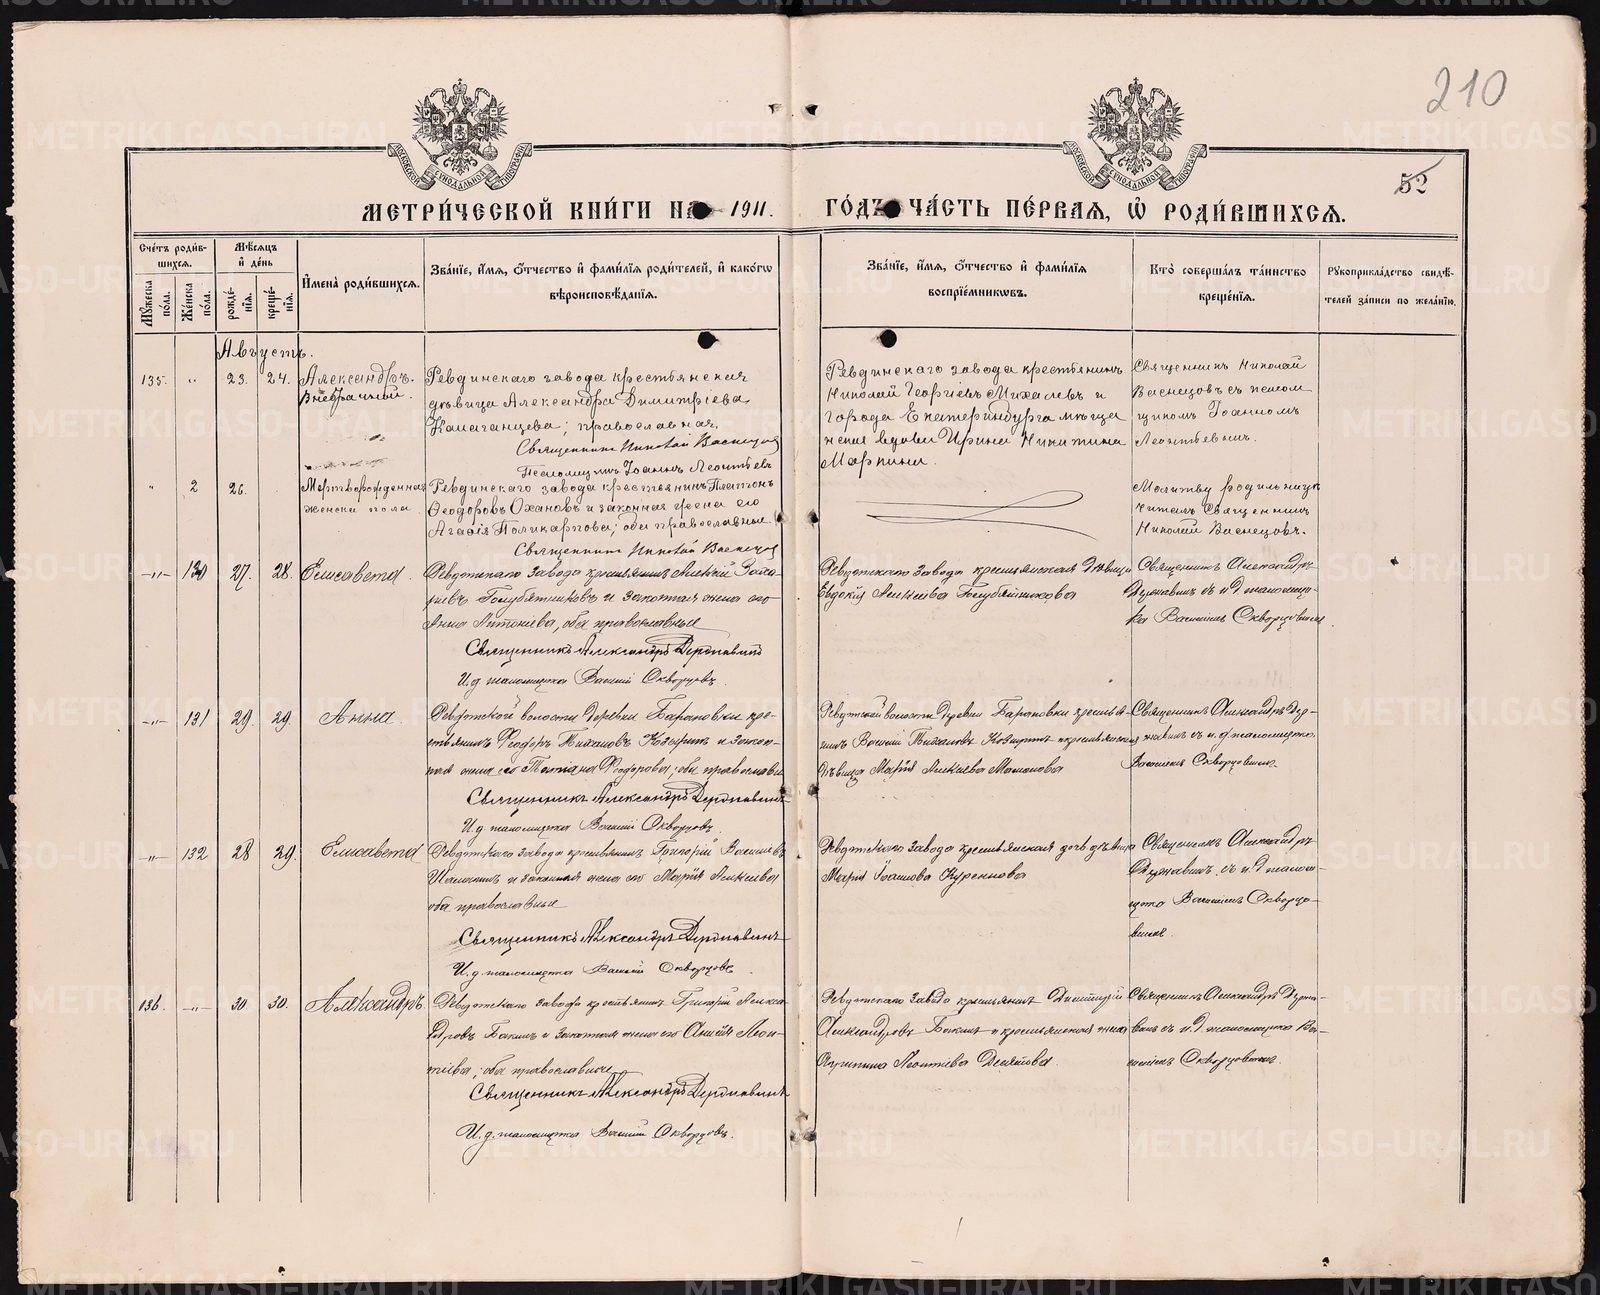 210
52
МЕТРИ́ЧЕСКОЙ КНИ́ГИ НА 1911. ГО́ДЪ ЧА́СТЬ ПЕ́РВАЯ, Ѡ҆ РОДИ́ВШИХСЯ.
Сче́тъ роди́в-
шихся.
Му́жеска по́ла.
Же́нска по́ла.
Мѣ́сяцъ
и҆ де́нь
рожде́-
нїѧ.
креще́-
нїѧ.
И҆мена̀ роди́вшихся.
Зва́нїе, и҆́мѧ, ѻ҆́тчество и҆ фами́лїѧ роди́телей, и҆ како́гѡ
вѣроисповѣ́данїѧ.
Зва́нїе, и҆́мѧ, ѻ҆́тчество и҆ фами́лїѧ
воспрїе́мникѡвъ.
Кто̀ соверша́лъ та́инство
креще́нїѧ.
Рукоприкла́дство свидѣ́-
телей за́писи по жела́нїю.
Августъ.
135. „ 23. 24. Александръ.
Внебрачный.
Ревдинскаго завода крестьянская
дѣвица Александра Димитріева
православная.
Священникъ Николай Васнецов
Псаломщикъ Іоаннъ Леонтьевъ
Ревдинскаго завода крестьянинъ
Николай Георгіевъ Михалевъ и
города Екатеринбурга мѣща
нская вдова Ирина Никитина
Священникъ Николай
Васнецовъ съ псалом
щикомъ Іоанномъ
Леонтьевымъ.
„ 2 26. Мертворожденная
женска пола
Ревдинскаго завода крестьянинъ Платонъ
Ѳеодоровъ Охановъ и законная жена его
Агаѳія Поликарпова; оба православные
Священникъ Николай Васнецов
Молитву родильницѣ
читалъ Священникъ
Николай Васнецовъ.
—„— 130 27. 28. Елисавета.
Ревдинскаго завода крестьянинъ Алексій Заха-
ріевъ Голубятниковъ и законная жена его
Анна Антоніева, оба православные
Священникъ Александръ Державинъ
И. д. псаломщика Василій Скворцовъ.
Ревдинскаго завода крестьянская дѣвица
Евдокія Алексіева Голубятникова
Священникъ Александръ
Державинъ съ и. д. псаломщи-
ка Василіемъ Скворцовымъ
—„— 131 29. 29. Анна.
Ревдинской волости деревни Барановки кре-
стьянинъ Ѳеодоръ Тихановъ и закон-
ная жена его Татіана Ѳеодорова; оба православны
Священникъ Александръ Державинъ
И. д. псаломщика Василій Скворцовъ.
Ревдинской волости деревни Барановки крестья-
нинъ Василій Тихановъ и крестьянская
дѣвица Марія Алексіева Мамонова
Священникъ Александръ Дер-
жавинъ съ и. д. псаломщика
Василіемъ Скворцовымъ
—„— 132 28 29. Елисавета
Ревдинскаго завода крестьянинъ Григорій Василіевъ
и законная жена его Марія Алексіева
оба православные
Священникъ Александръ Державинъ
И. д. псаломщика Василій Скворцовъ.
Ревдинскаго завода крестьянская дочь дѣвица
Марія Куренкова
Священникъ Александръ
Державинъ съ и. д. псалом-
щика Василіемъ Скворцо-
вымъ.
136. —„— 30. 30. Александръ.
Ревдинскаго завода крестьянинъ Григорій Алекса-
ндровъ и законная жена его Анисія Леон-
тіева; оба православные
Священникъ Александръ Державинъ
И. д. псаломщика Василій Скворцовъ.
Ревдинскаго завода крестьянинъ Димитрій
Александровъ и крестьянская жена
Леонтіева
Священникъ Александръ Держа-
винъ съ и. д. псаломщика Ва-
силіемъ Скворцовымъ.